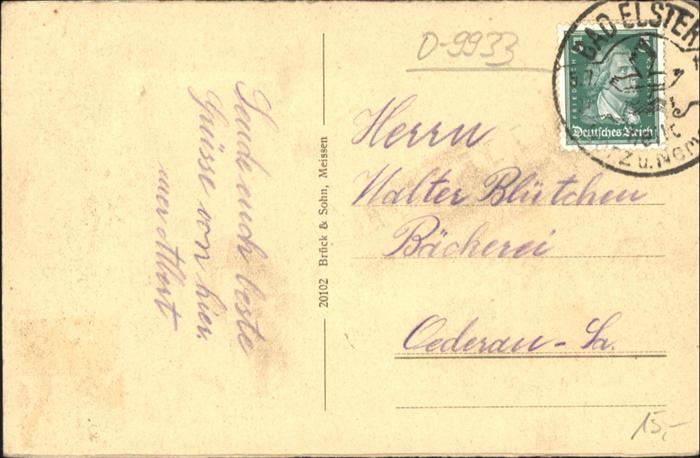 Sende euch beste
Grüsse von hier.
Albert
20102 Brück & Sohn, Meissen
D-9933
BAD ELSTER
Deutsches Reich
Herrn
Walter Blütchen
Bäckerei
Oederau - Sa.
15,-